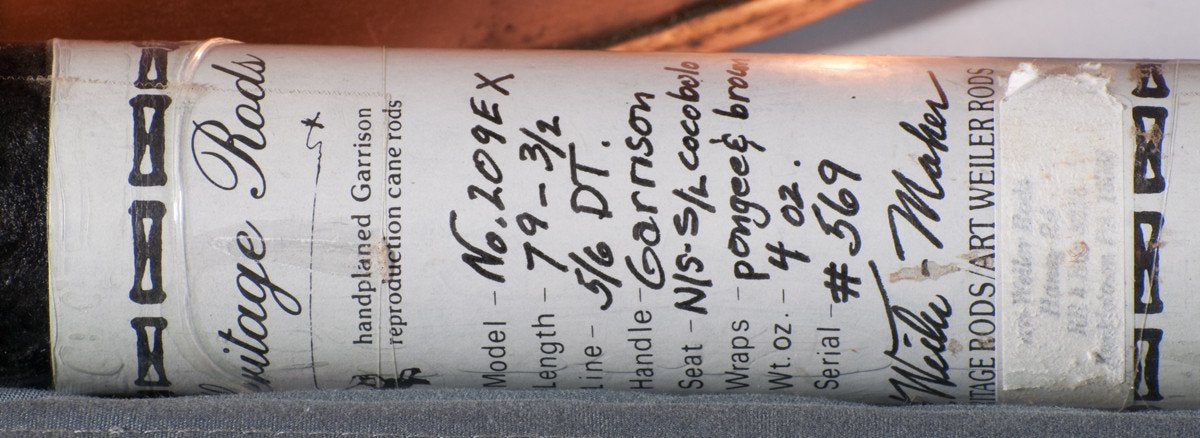 Rods
handplaned Garrison
reproduction cane rods
Model - No. 209EX
Length - 79 - 3/2
Line - 5/6 DT.
Handle - Garrison
Seat - N/S-S/L cocobolo
Wraps - pongee & brown
Wt. oz. - 4 oz.
Serial - # 569
Weiler - Maker
RODS/ART WEILER RODS